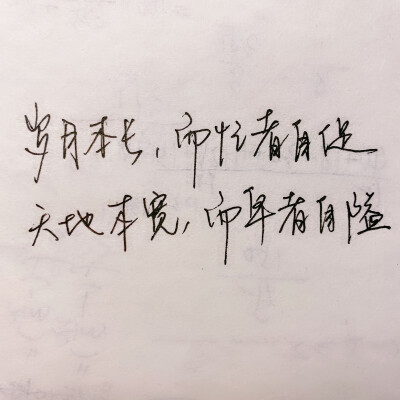 岁月本长，而忙者自促
天地本宽，而卑者自隘